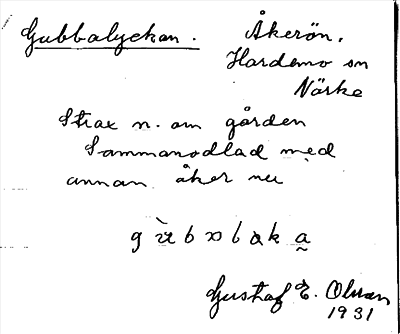 Gubbalyckan. Åkerön,
Hardemo sn
Närke
Strax n. om gården
Sammanodlad med
annan åker nu
Gustaf E. Olsson
1931